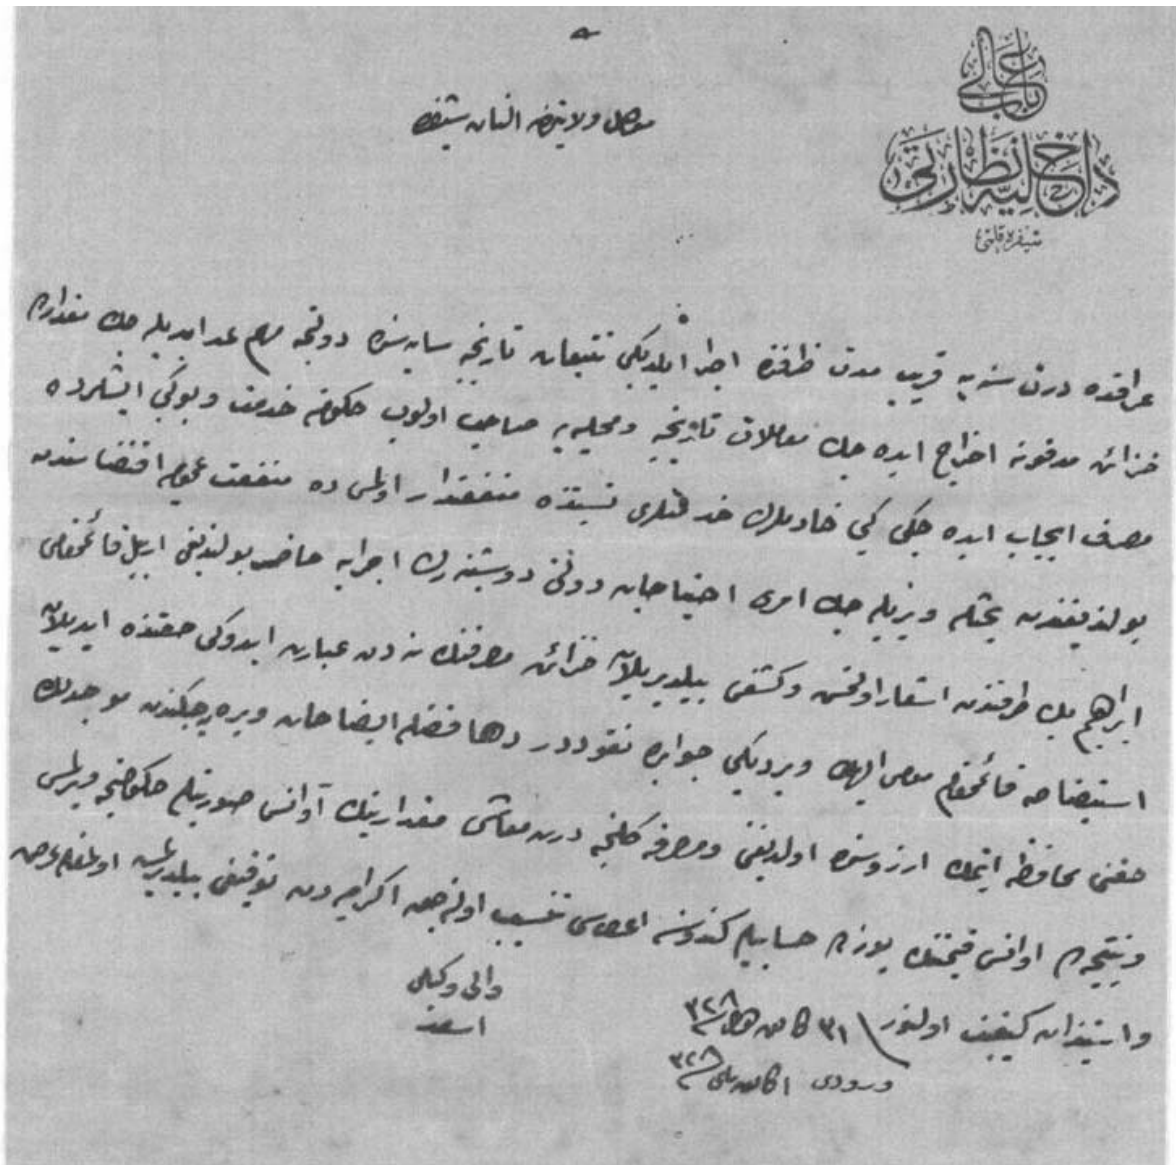 باب عالی
داخلیه نظارتی
شفره قلمی
موصل ولایتندن النان شفره
عراقده درت سنه یه قریب مدت ظرفنده اجرا ایلدیکی تتبعات تاریخیه سایه سنده دولتجه مهم عد ایدیله جك مقدارده
خزائن مدفونه اخراج ایده جك معلومات تاریخیه ومحلیه یه صاحب اولوب حکومته خدمت وبوکبی ایشلرده
مصرف ایجاب ایده جکی کبی خادملرك خدمتلری نسبتنده منفعتدار اولمسی ده منفعت عمومیه اقتضاسندن
بولندیغندن بحثله ویریله جك امره احتیاجات دولتی دوشنه رك اجرایه حاضر بولندیغی اربیل قائممقامی
ابراهیم بك طرفندن اشعار اولنمش وکشفی بیلدیریلان خزائن مصرفنك نه دن عبارت ایدوکی حقنده ایدیلان
استیضاحه قائممقام مومی الیهك ویردیکی جوابده نقوددر دها فضله ایضاحات ویره میه جکندن موجدلك
حقنی محافظه ایتمك ارزوسنده اولدیغنی ومصرفه کلنجه درت معاشی مقدارینك آوانس صورتیله حکومتجه ویرلمسی
ونتیجه ده اوانس قیمتنك یوزده حسابیله کندوسنه اعطاسی تنسیب اولنه جق اکرامیه دن توقیفنی بیلدیرلمش اولمغله عرض
واستیذان کیفیت اولنور ٣١ كانون اول سنه ٣٢٨
والی وکیلی
اسعد
ورودی ١ كانون ثانی سنه ٣٢٨